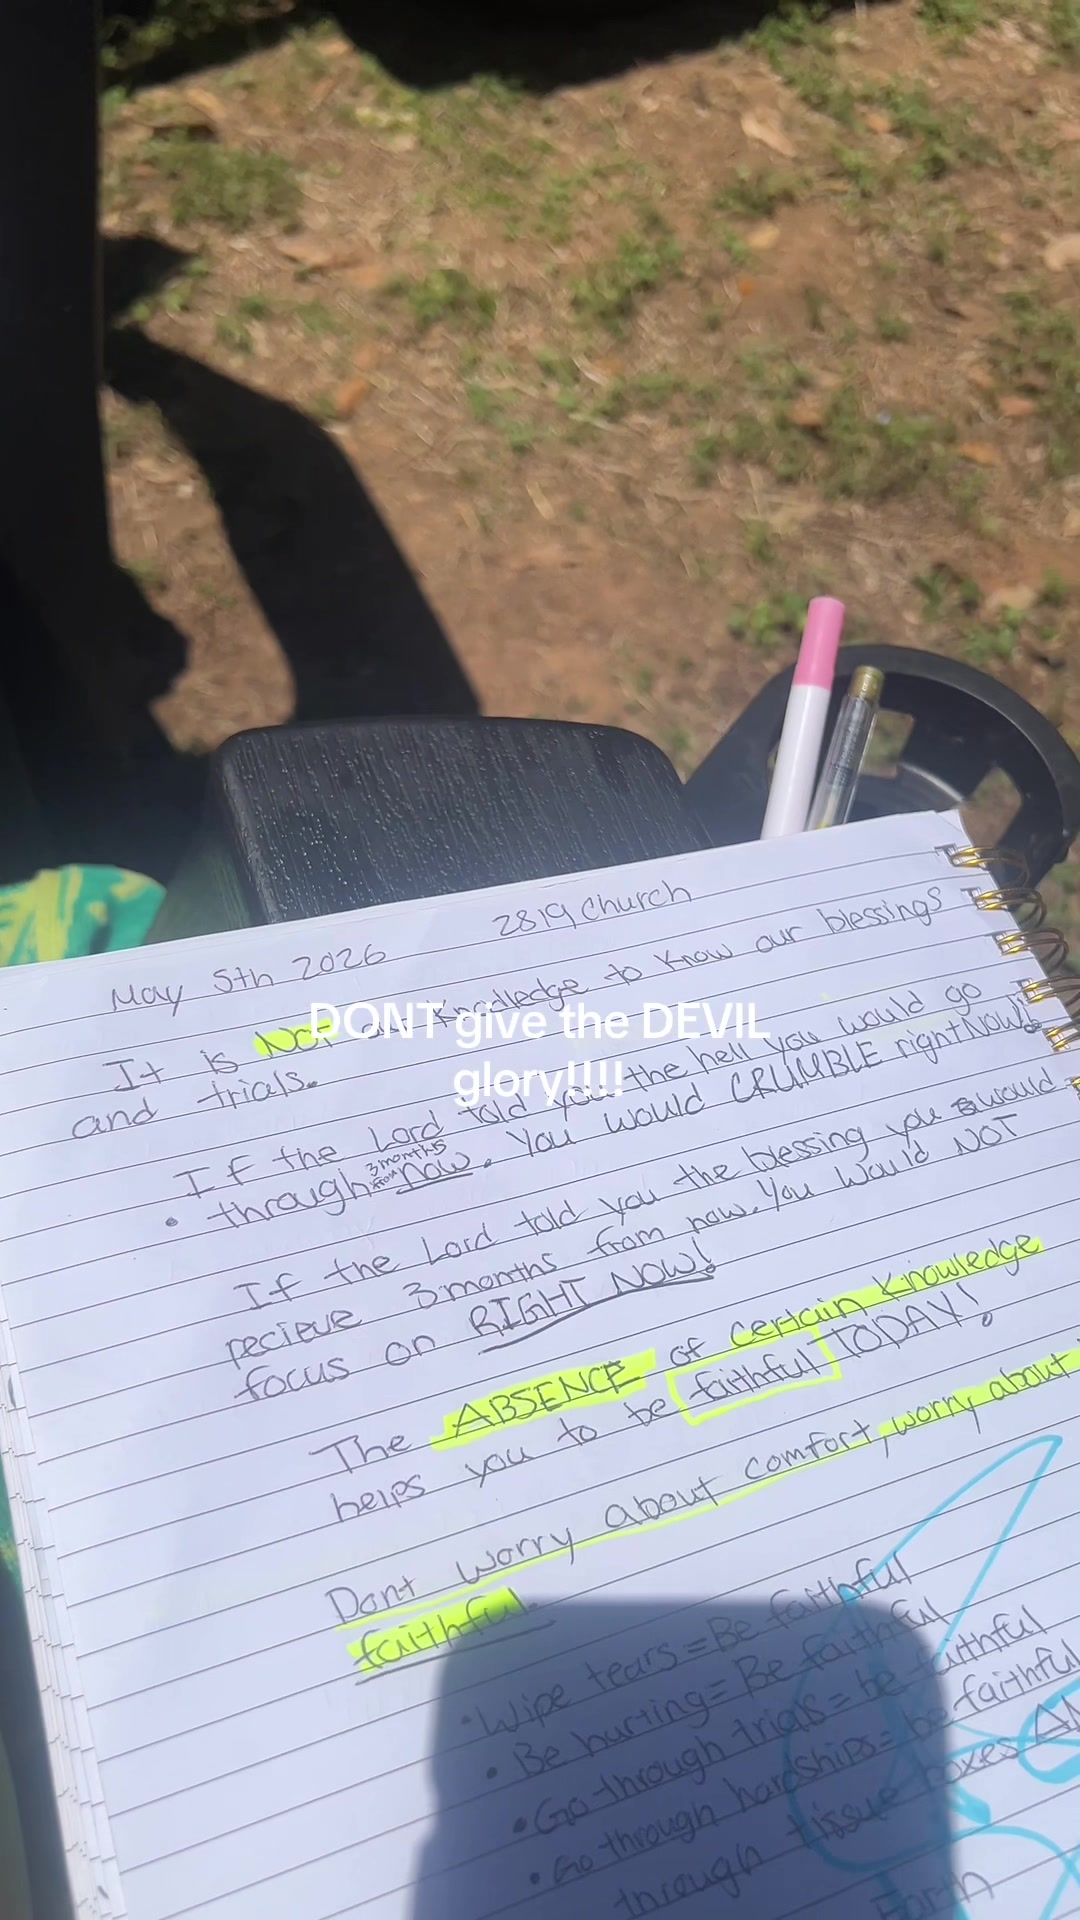 May 5th 2026 2819 Church
It is NOT our Knodledge to know our blessings
and trials.
DONT give the DEVIL
glory!!!!
If the Lord told you the hell you would go
• through 3 months from now. You would CRUMBLE right Now!
If the Lord told you the blessing you would
recieve 3 months from now. You would NOT
focus on RIGHT NOW!
The ABSENCE of certain knowledge
helps you to be faithful TODAY!
Dont worry about comfort, worry about
faithful.
• Wipe tears = Be faithful
• Be hurting = Be faithful
• Go through trials = be faithful
• Go through hardships = be faithful
through tissue boxes
Earth